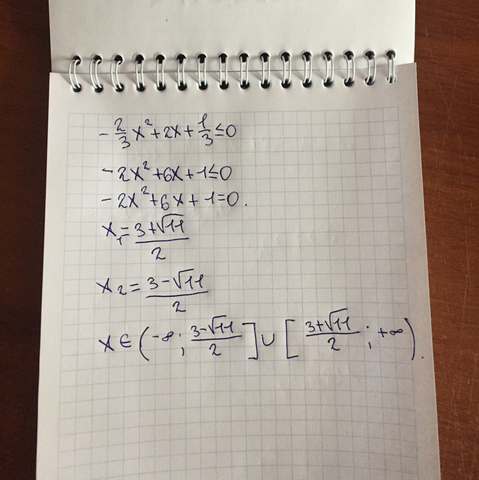 -2/3 x²+2x+1/3≤0
-2x²+6x+1≤0
-2x²+6x+1=0.
x₁=(3+√11)/2
x₂=(3-√11)/2
x∈(-∞; (3-√11)/2]∪[(3+√11)/2; +∞).